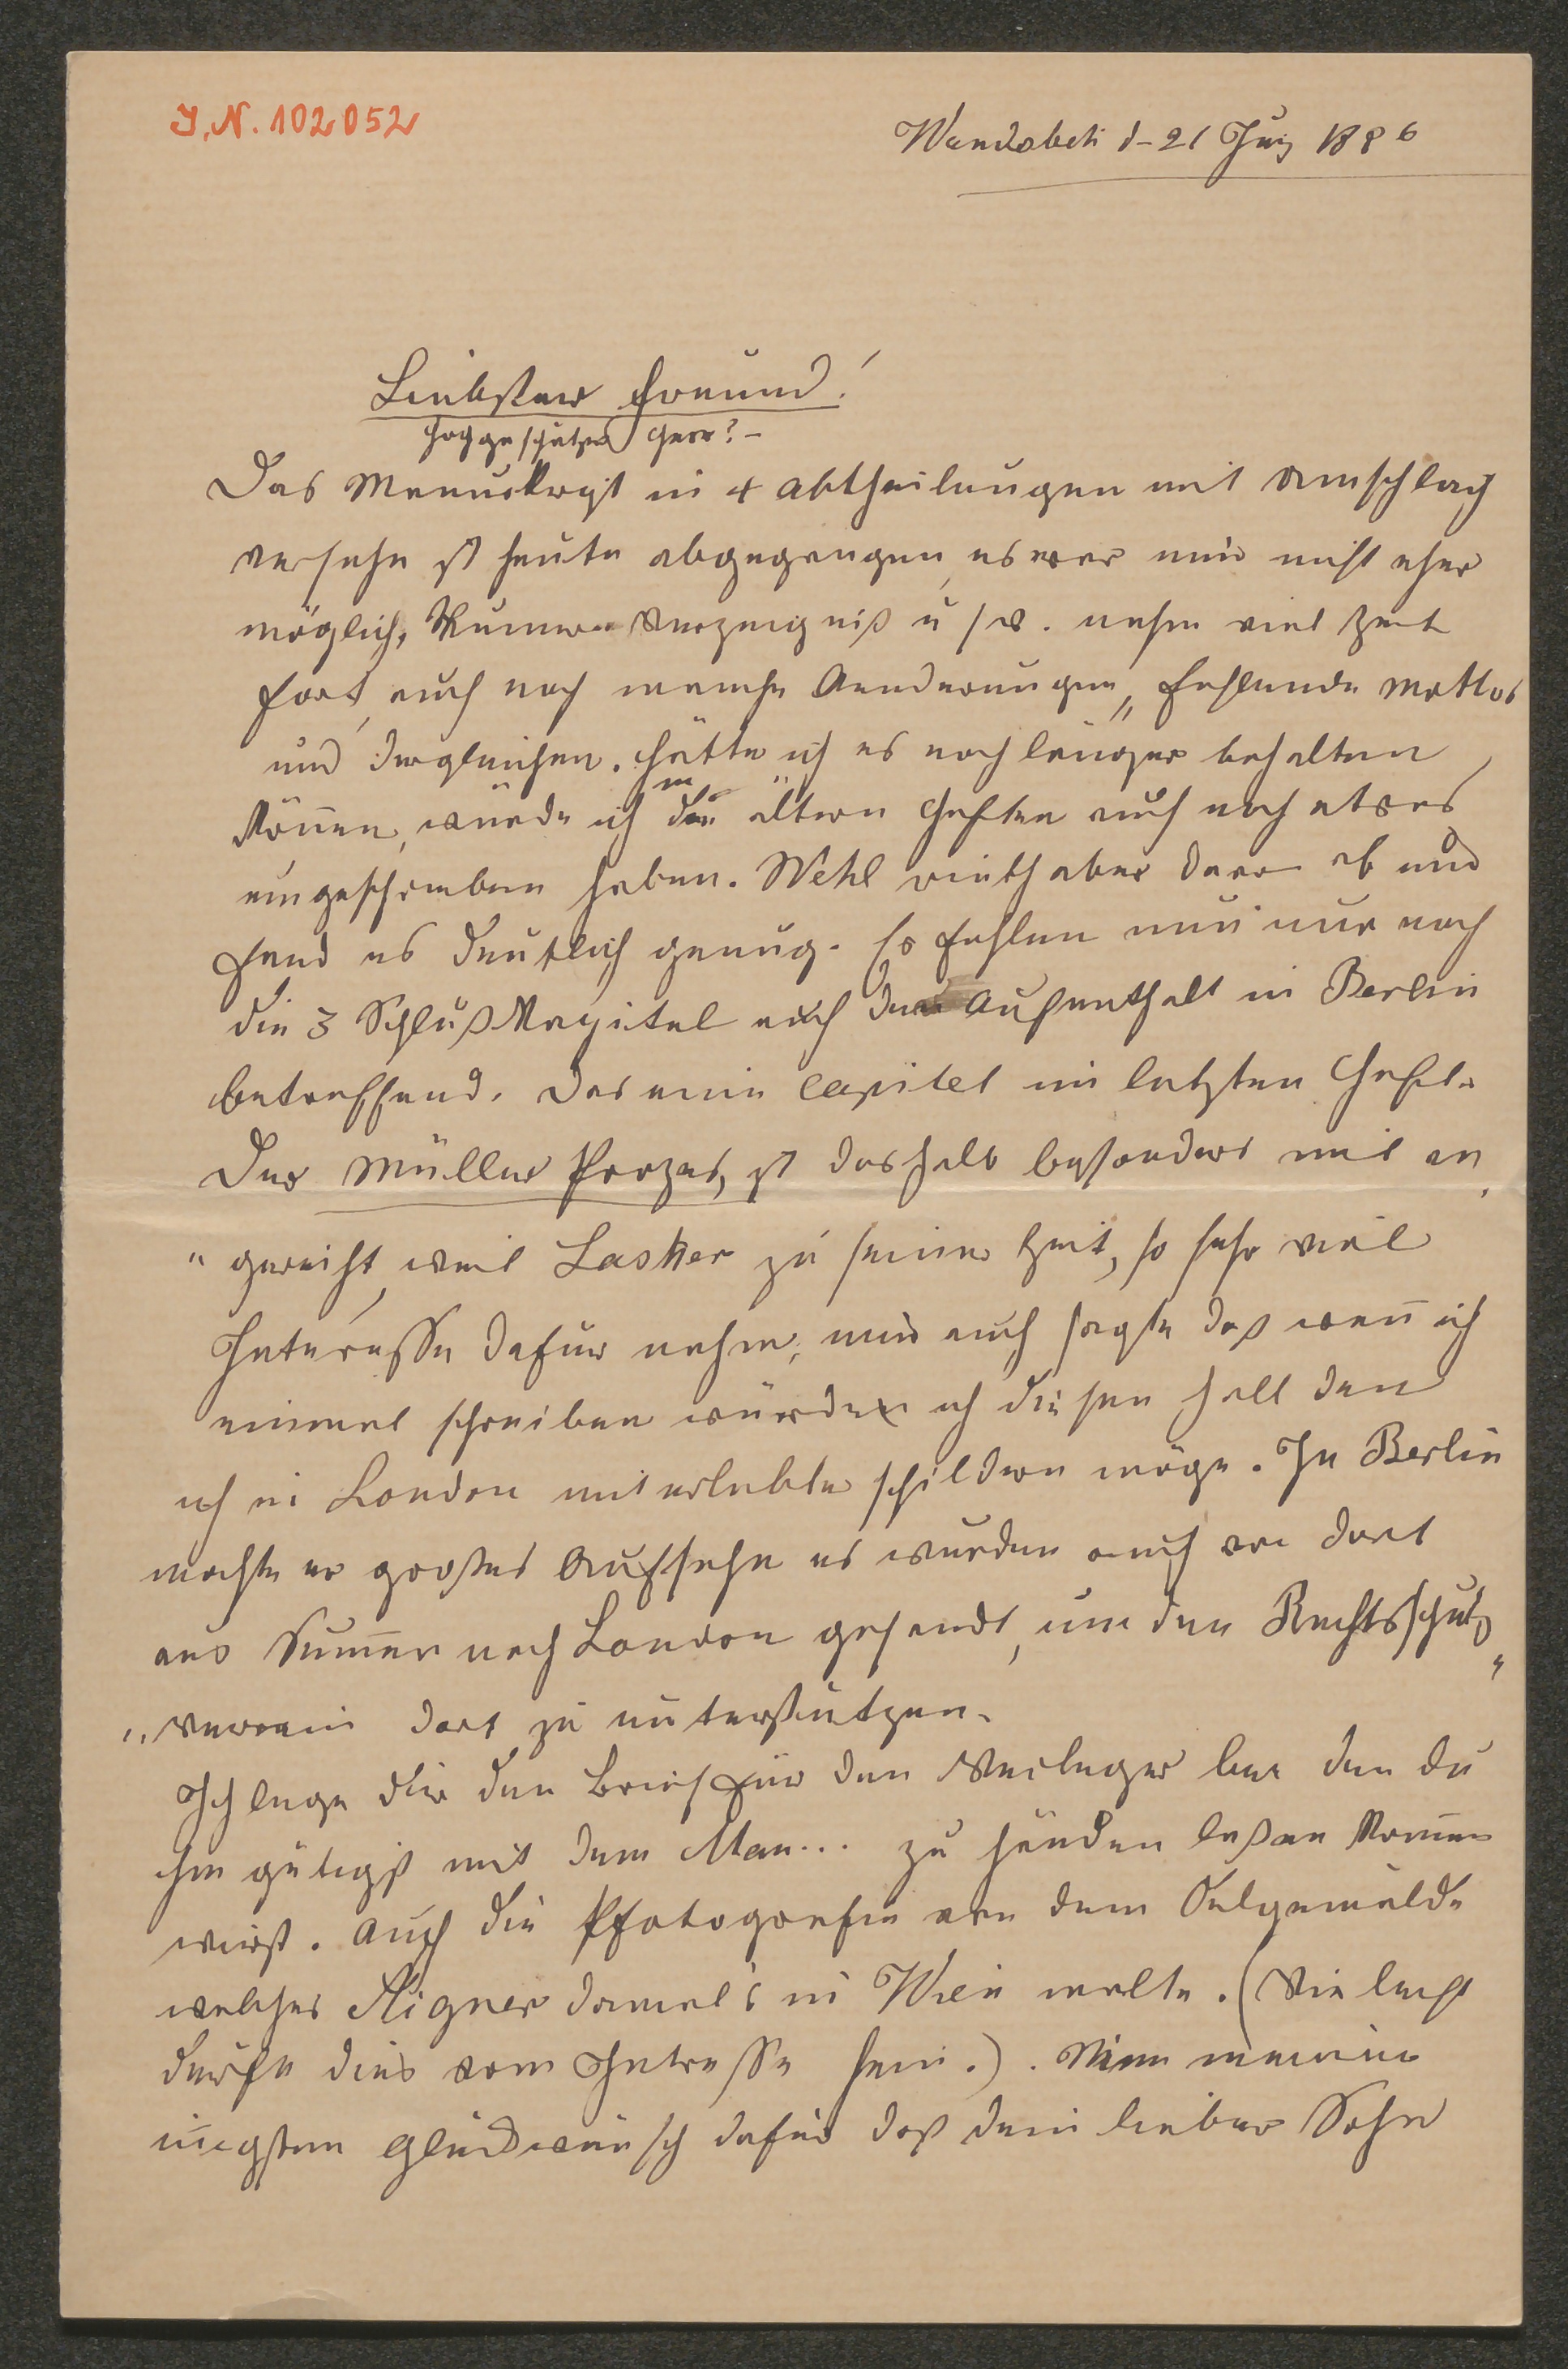 I.N. 102052
Wandsbek d- 21 Juni 1886
Liebster Freund!
Hochgeschätzter Herr? -
Das Manuskript in 4 Abtheilungen mit Umschlag
versehn ist heute abgegangen, es war mir nicht eher
möglich, Verzeigniß u s w. nahm viel Zeit
fort, auch noch manche Aenderungen, fehlende Mottos
und dergleichen. Hätte ich es noch länger behalten
können, würde ich in den ältern Heften auch noch etwas
eingeschrieben haben. Wehl rieth aber davon ab und
fand es deutlich genug. Es fehlen nun nur noch
die 3 Schluß Kapitel auch den Aufenthalt in Berlin
betreffend. Das eine Capitel im letzten Heft.
Der Müller Prozes, ist deshalb besonders mit an
"gereiht, weil Lasker zu seiner Zeit, so sehr viel
Interesse dafür nahm, mir auch sagte daß wenn ich
einmal schreiben würde ich diesen Fall den
ich in London miterlebte schildern möge. In Berlin
machte er großes Aufsehn es wurden auch von dort
aus Summen nach London gesandt, um den Rechtsschutz
"Verein dort zu unterstützen.
Ich lege dir den Brief für den Verleger bei den du
ihm gütigst mit dem Man... zu Händen laßen kommen
wirst. Auch die Pfotografie von dem Oelgemälde
welches Aigner damals in Wien malte. (Vieleicht
dürfte dies vom Intresse sein.). Nimm meinen
innigsten Glückwunsch dafür daß dein lieber Sohn